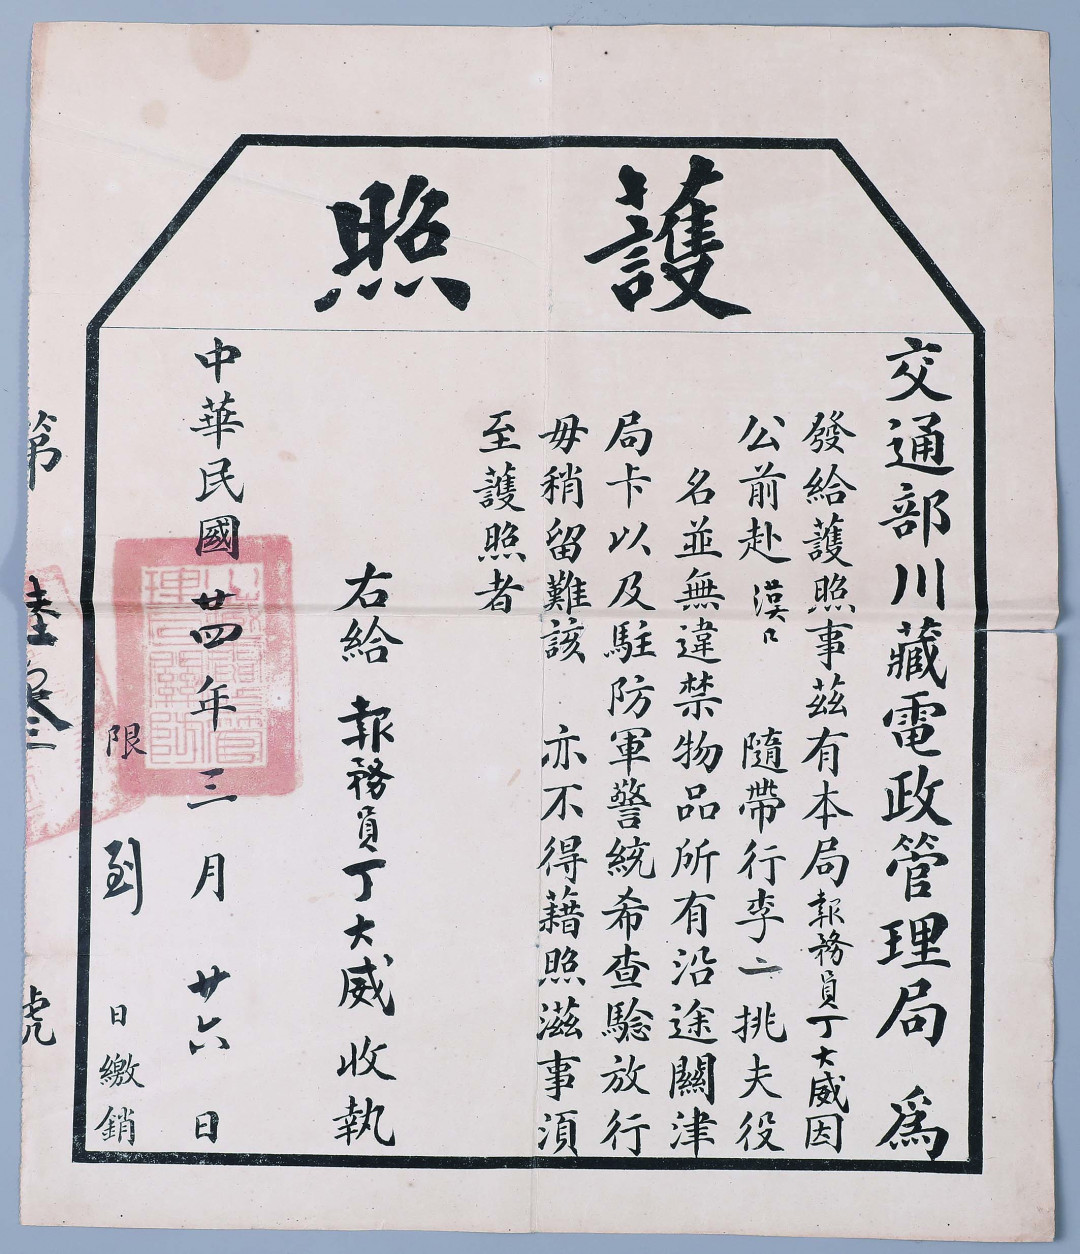 護照
交通部川藏電政管理局 爲
發給護照事茲有本局報務員丁大威因
公前赴漢口 隨帶行李二挑夫役
名並無違禁物品所有沿途關津
局卡以及駐防軍警統希查驗放行
毋稍留難該 亦不得藉照滋事須
至護照者
右給 報務員丁大威收執
中華民國廿四年三月廿六日
限 到 日繳銷
第 號